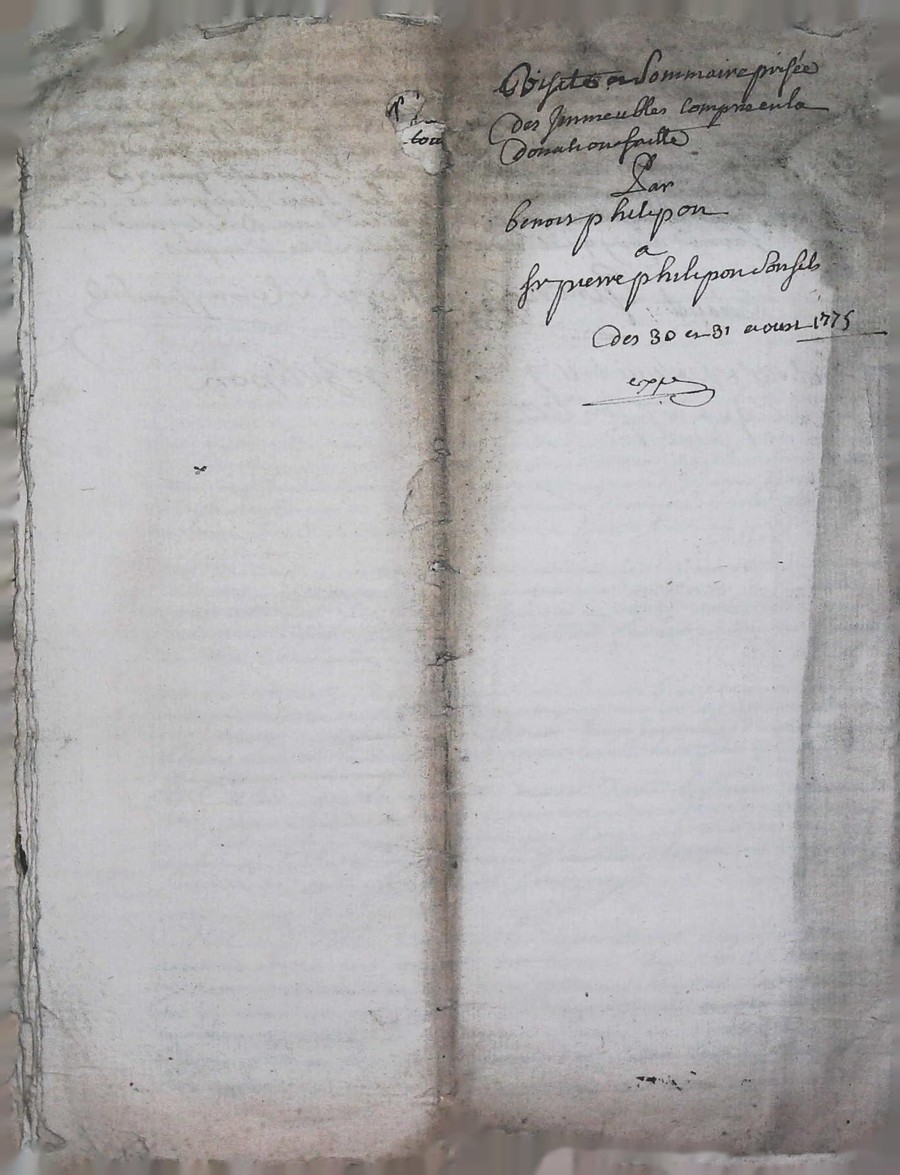 Visite et Sommaire prisée
des Immeubles compris en la
donation faitte
Par
benoit philipon
a
Sr pierre philipon son fils
des 30 et 31 aoust 1775
expé